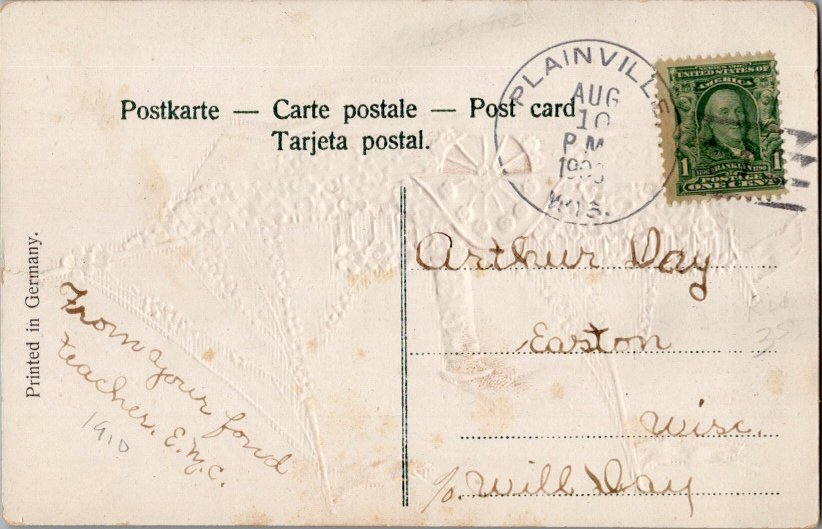 Postkarte — Carte postale — Post card
Tarjeta postal.
PLAINVILLE
AUG
10
P.M.
WIS.
SERIES 1902
UNITED STATES OF
AMERICA
1 FRANKLIN 1
POSTAGE
ONE CENT
Printed in Germany.
From your fond
teacher. E.M.C.
1910
Arthur Day
Easton
Wisc.
c/o. Will Day